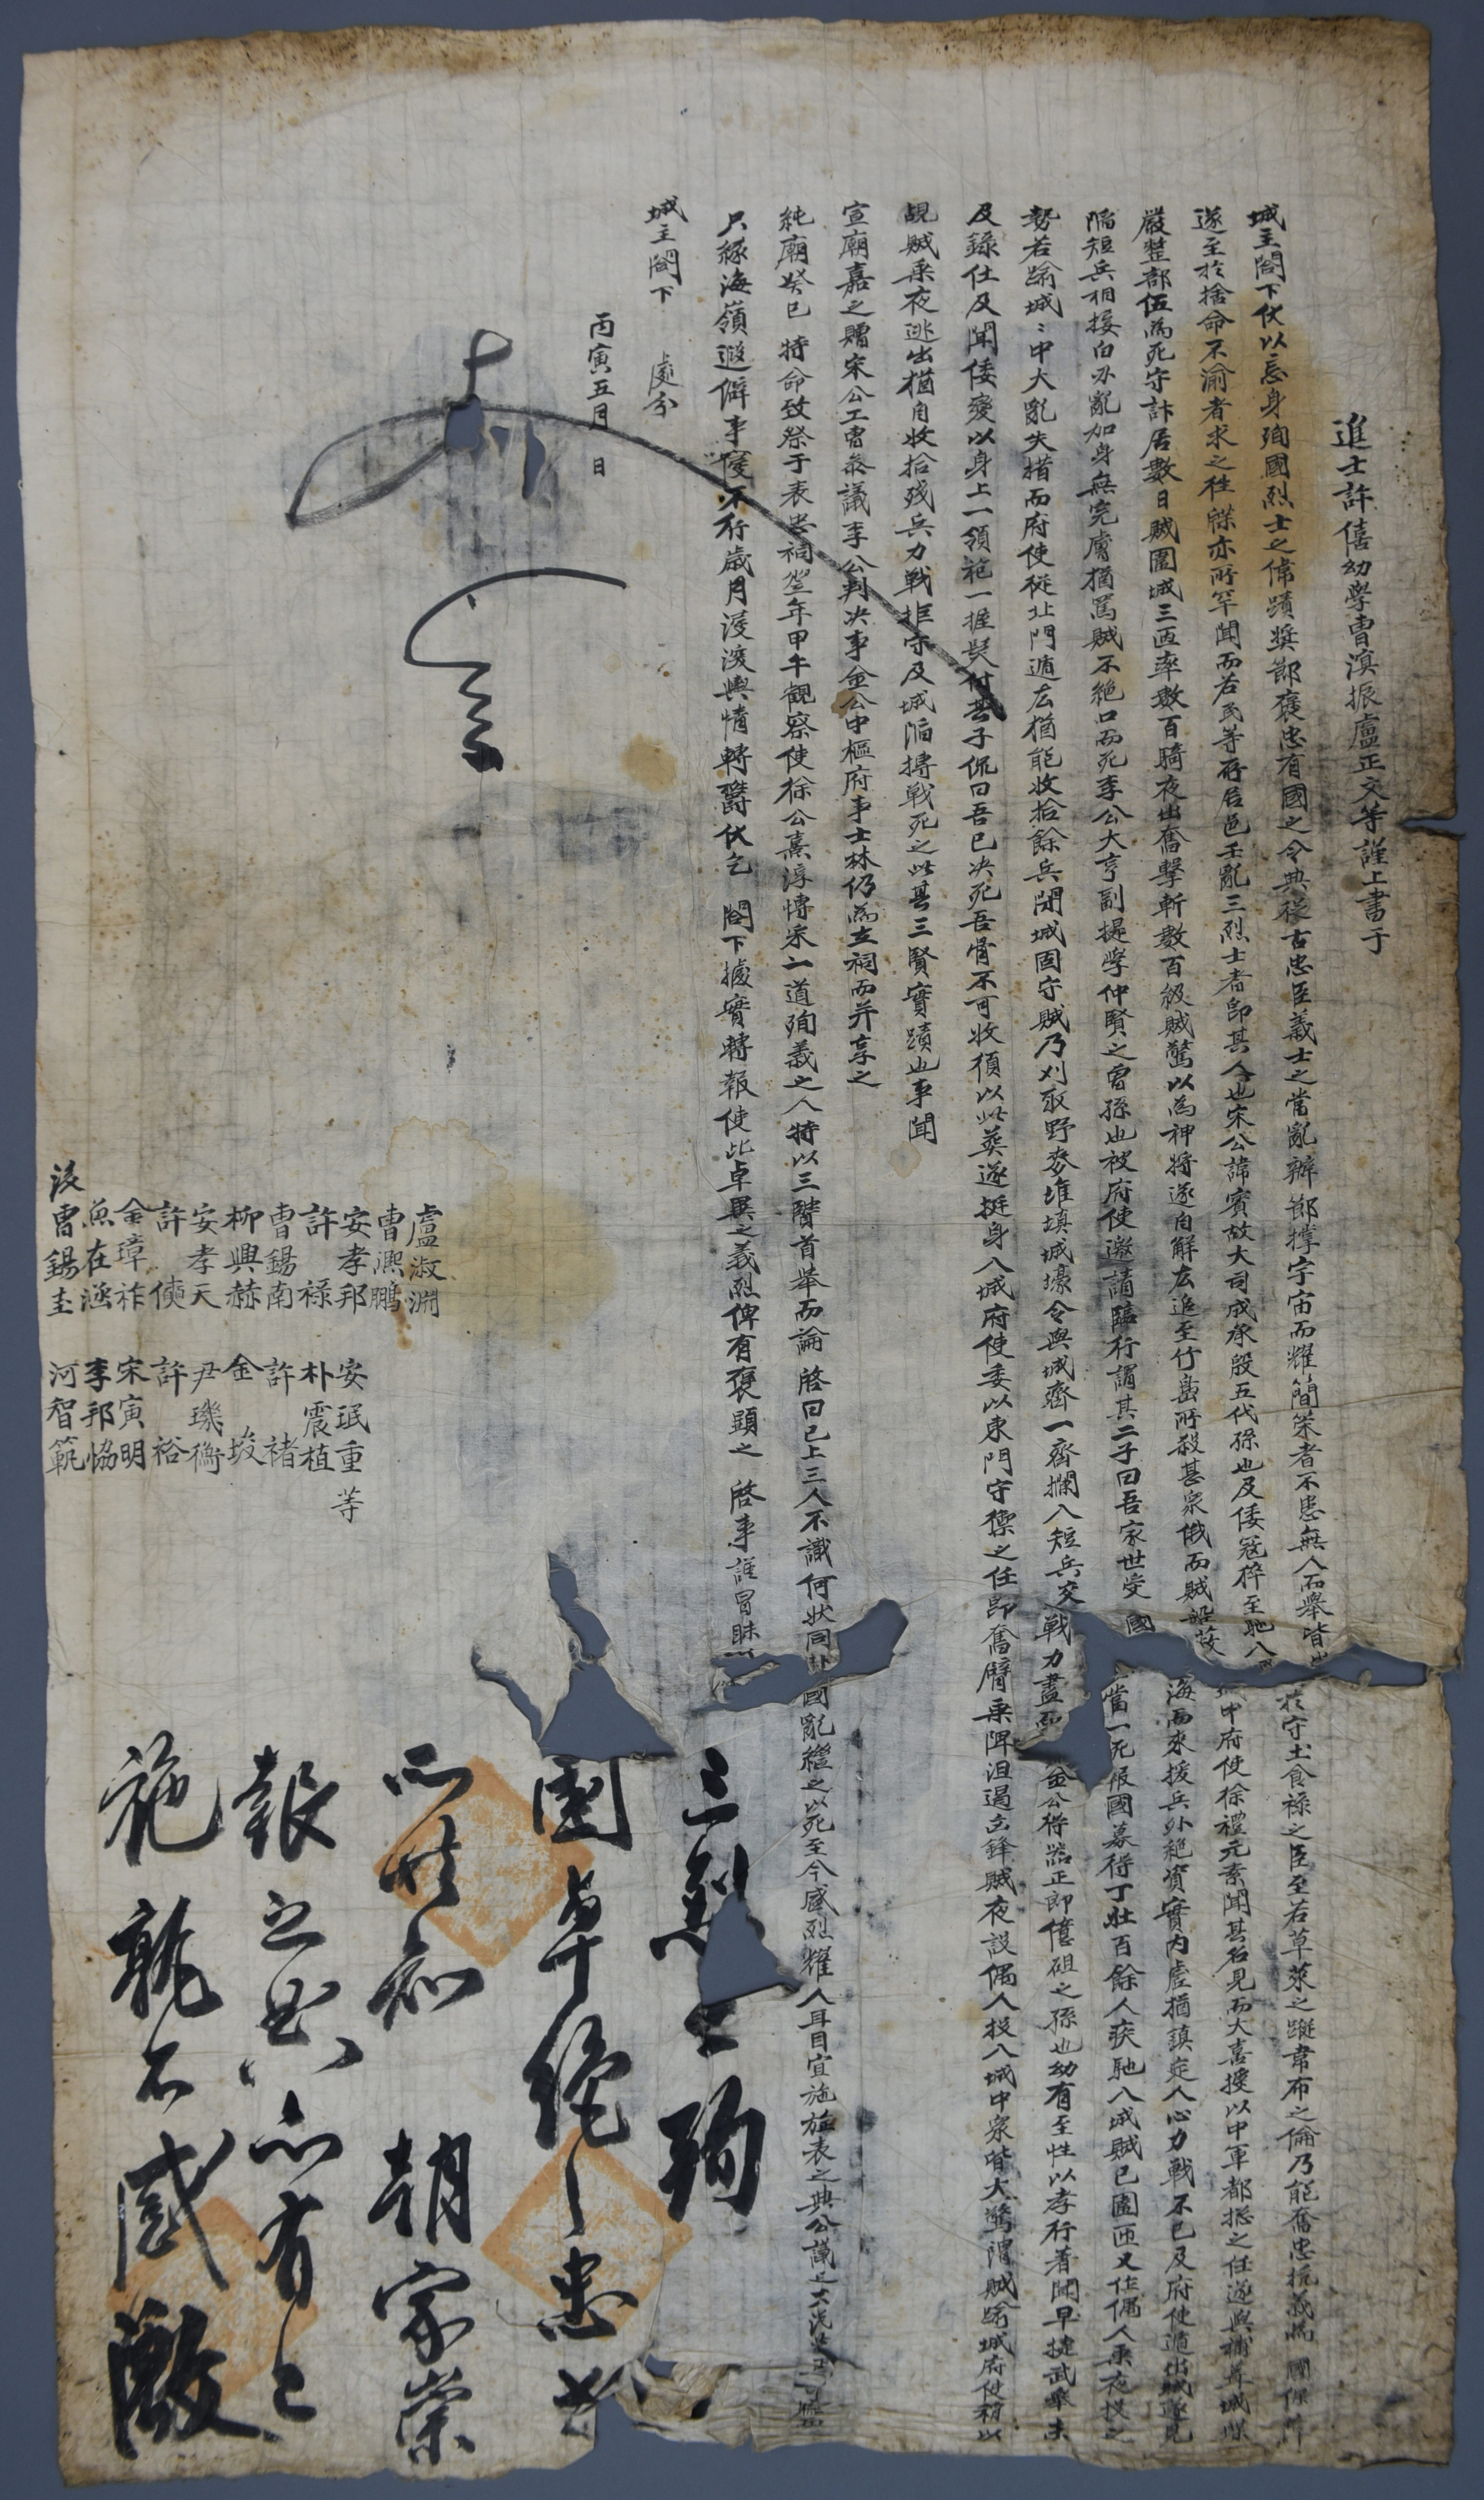 進士許僖幼學曺演振盧正文等謹上書于
城主閤下伏以忘身殉國烈士之偉蹟奬節褒忠有國之令典從古忠臣義士之當亂辦節撑宇宙而耀簡策者不患無人而擧皆出於守土食祿之臣至若草萊之蹤韋布之倫乃能奮忠抗義爲 國保障
遂至於捨命不渝者求之往牒亦所罕聞而若民等府居邑壬亂三烈士者卽其人也宋公諱賓故大司成承殷五代孫也及倭寇猝至馳入城中府使徐禮元素聞其名見而大喜授以中軍都摠之任遂與補葺城堞
嚴整部伍爲死守計居數日賊圍城三匝率數百騎夜出奮擊斬數百級賊驚以爲神將遂自解去追至竹島所殺甚衆俄而賊船蔽海而來援兵外絶資實內虛猶鎭定人心力戰不已及府使遁出城遂見
陷短兵相接白刃亂加身無完膚猶罵賊不絶口而死李公大亨副提學仲賢之曾孫也被府使邀請臨行謂其二子曰吾家世受 國 當一死報國募得丁壯百餘人疾馳入城賊已圍匝又作偶人乘夜投之
勢若踰城城中大亂失措而府使從北門遁去猶能收拾餘兵閉城固守賊乃刈取野麥堆塡城壕令與城齊一齊攔入短兵交戰力盡而 金公得器正郞億碅之孫也幼有至性以孝行著聞早捷武擧未
及錄仕及聞倭變以身上一領袍一握髮付其子侃曰吾已決死吾骨不可收須以此葬遂挺身入城府使委以東門守禦之任卽奮臂乘陴沮遏去鋒賊夜設偶人投入城中衆皆大驚謂賊踰城府使稱以
覘賊乘夜逃出猶自收拾殘兵力戰拒守及城陷搏戰死之此其三賢實蹟也事聞
宣廟嘉之贈宋公工曺參議李公判決事金公中樞府事士林仍爲立祠而幷享之
純廟癸巳 特命致祭于表忠祠翌年甲午觀察使徐公熹淳博采一道殉義之人特以三賢首擧而論 啓曰已上三人不識何狀同赴國亂繼之以死至今感烈耀人耳目宜施旌表之典公議之
只緣海嶺遐僻事寢不行歲月浸深輿情轉鬱伏乞 閤下據實轉報使此卓異之義烈俾有褒顯之 啓事謹冒昧
城主閤下 處分
丙寅五月 日
盧淑淵
曺熙鵬
安孝邦 安珉重 等
許祿 朴震植
曺錫南 許褚
柳興赫 金埈
安孝天 尹璣衡
許㥥 許裕
金璋祚 宋寅明
魚在涵 李邦協
後曺錫圭 河智範
三烈士殉
國卓絶之忠
所共知 朝家崇
報之典亦有之
施孰不感激